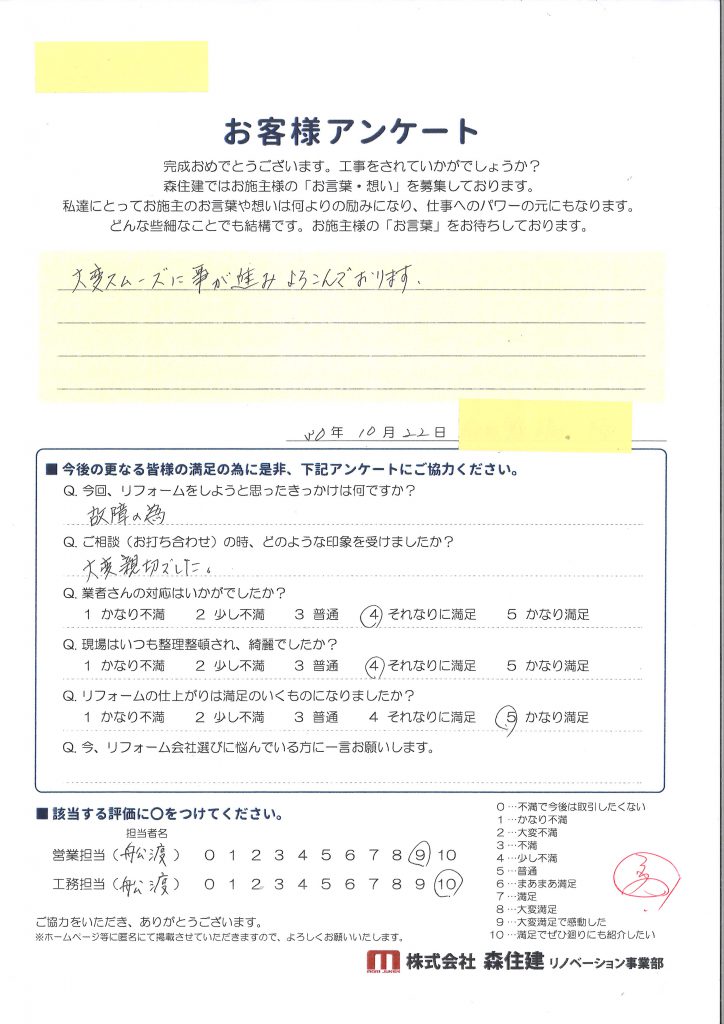 お客様アンケート
完成おめでとうございます。工事をされていかがでしょうか？
森住建ではお施主様の「お言葉・想い」を募集しております。
私達にとってお施主のお言葉や想いは何よりの励みになり、仕事へのパワーの元にもなります。
どんな些細なことでも結構です。お施主様の「お言葉」をお待ちしております。
大変スムーズに事が進みよろこんでおります.
年 10月22日
■ 今後の更なる皆様の満足の為に是非、下記アンケートにご協力ください。
Q. 今回、リフォームをしようと思ったきっかけは何ですか？
故障の為
Q. ご相談（お打ち合わせ）の時、どのような印象を受けましたか？
大変親切でした。
Q. 業者さんの対応はいかがでしたか？
1 かなり不満 2 少し不満 3 普通 4 それなりに満足 5 かなり満足
Q. 現場はいつも整理整頓され、綺麗でしたか？
1 かなり不満 2 少し不満 3 普通 4 それなりに満足 5 かなり満足
Q. リフォームの仕上がりは満足のいくものになりましたか？
1 かなり不満 2 少し不満 3 普通 4 それなりに満足 5 かなり満足
Q. 今、リフォーム会社選びに悩んでいる方に一言お願いします。
■ 該当する評価に〇をつけてください。
担当者名
営業担当（舩渡） 0 1 2 3 4 5 6 7 8 9 10
工務担当（舩渡） 0 1 2 3 4 5 6 7 8 9 10
0…不満で今後は取引したくない
1…かなり不満
2…大変不満
3…不満
4…少し不満
5…普通
6…まあまあ満足
7…満足
8…大変満足
9…大変満足で感動した
10…満足でぜひ廻りにも紹介したい
ご協力をいただき、ありがとうございます。
※ホームページ等に匿名にて掲載させていただきますので、よろしくお願いいたします。
株式会社 森住建 リノベーション事業部